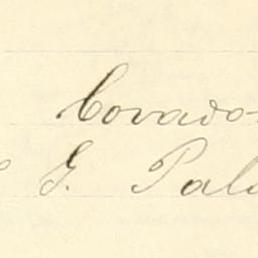 Covado
G. Pal